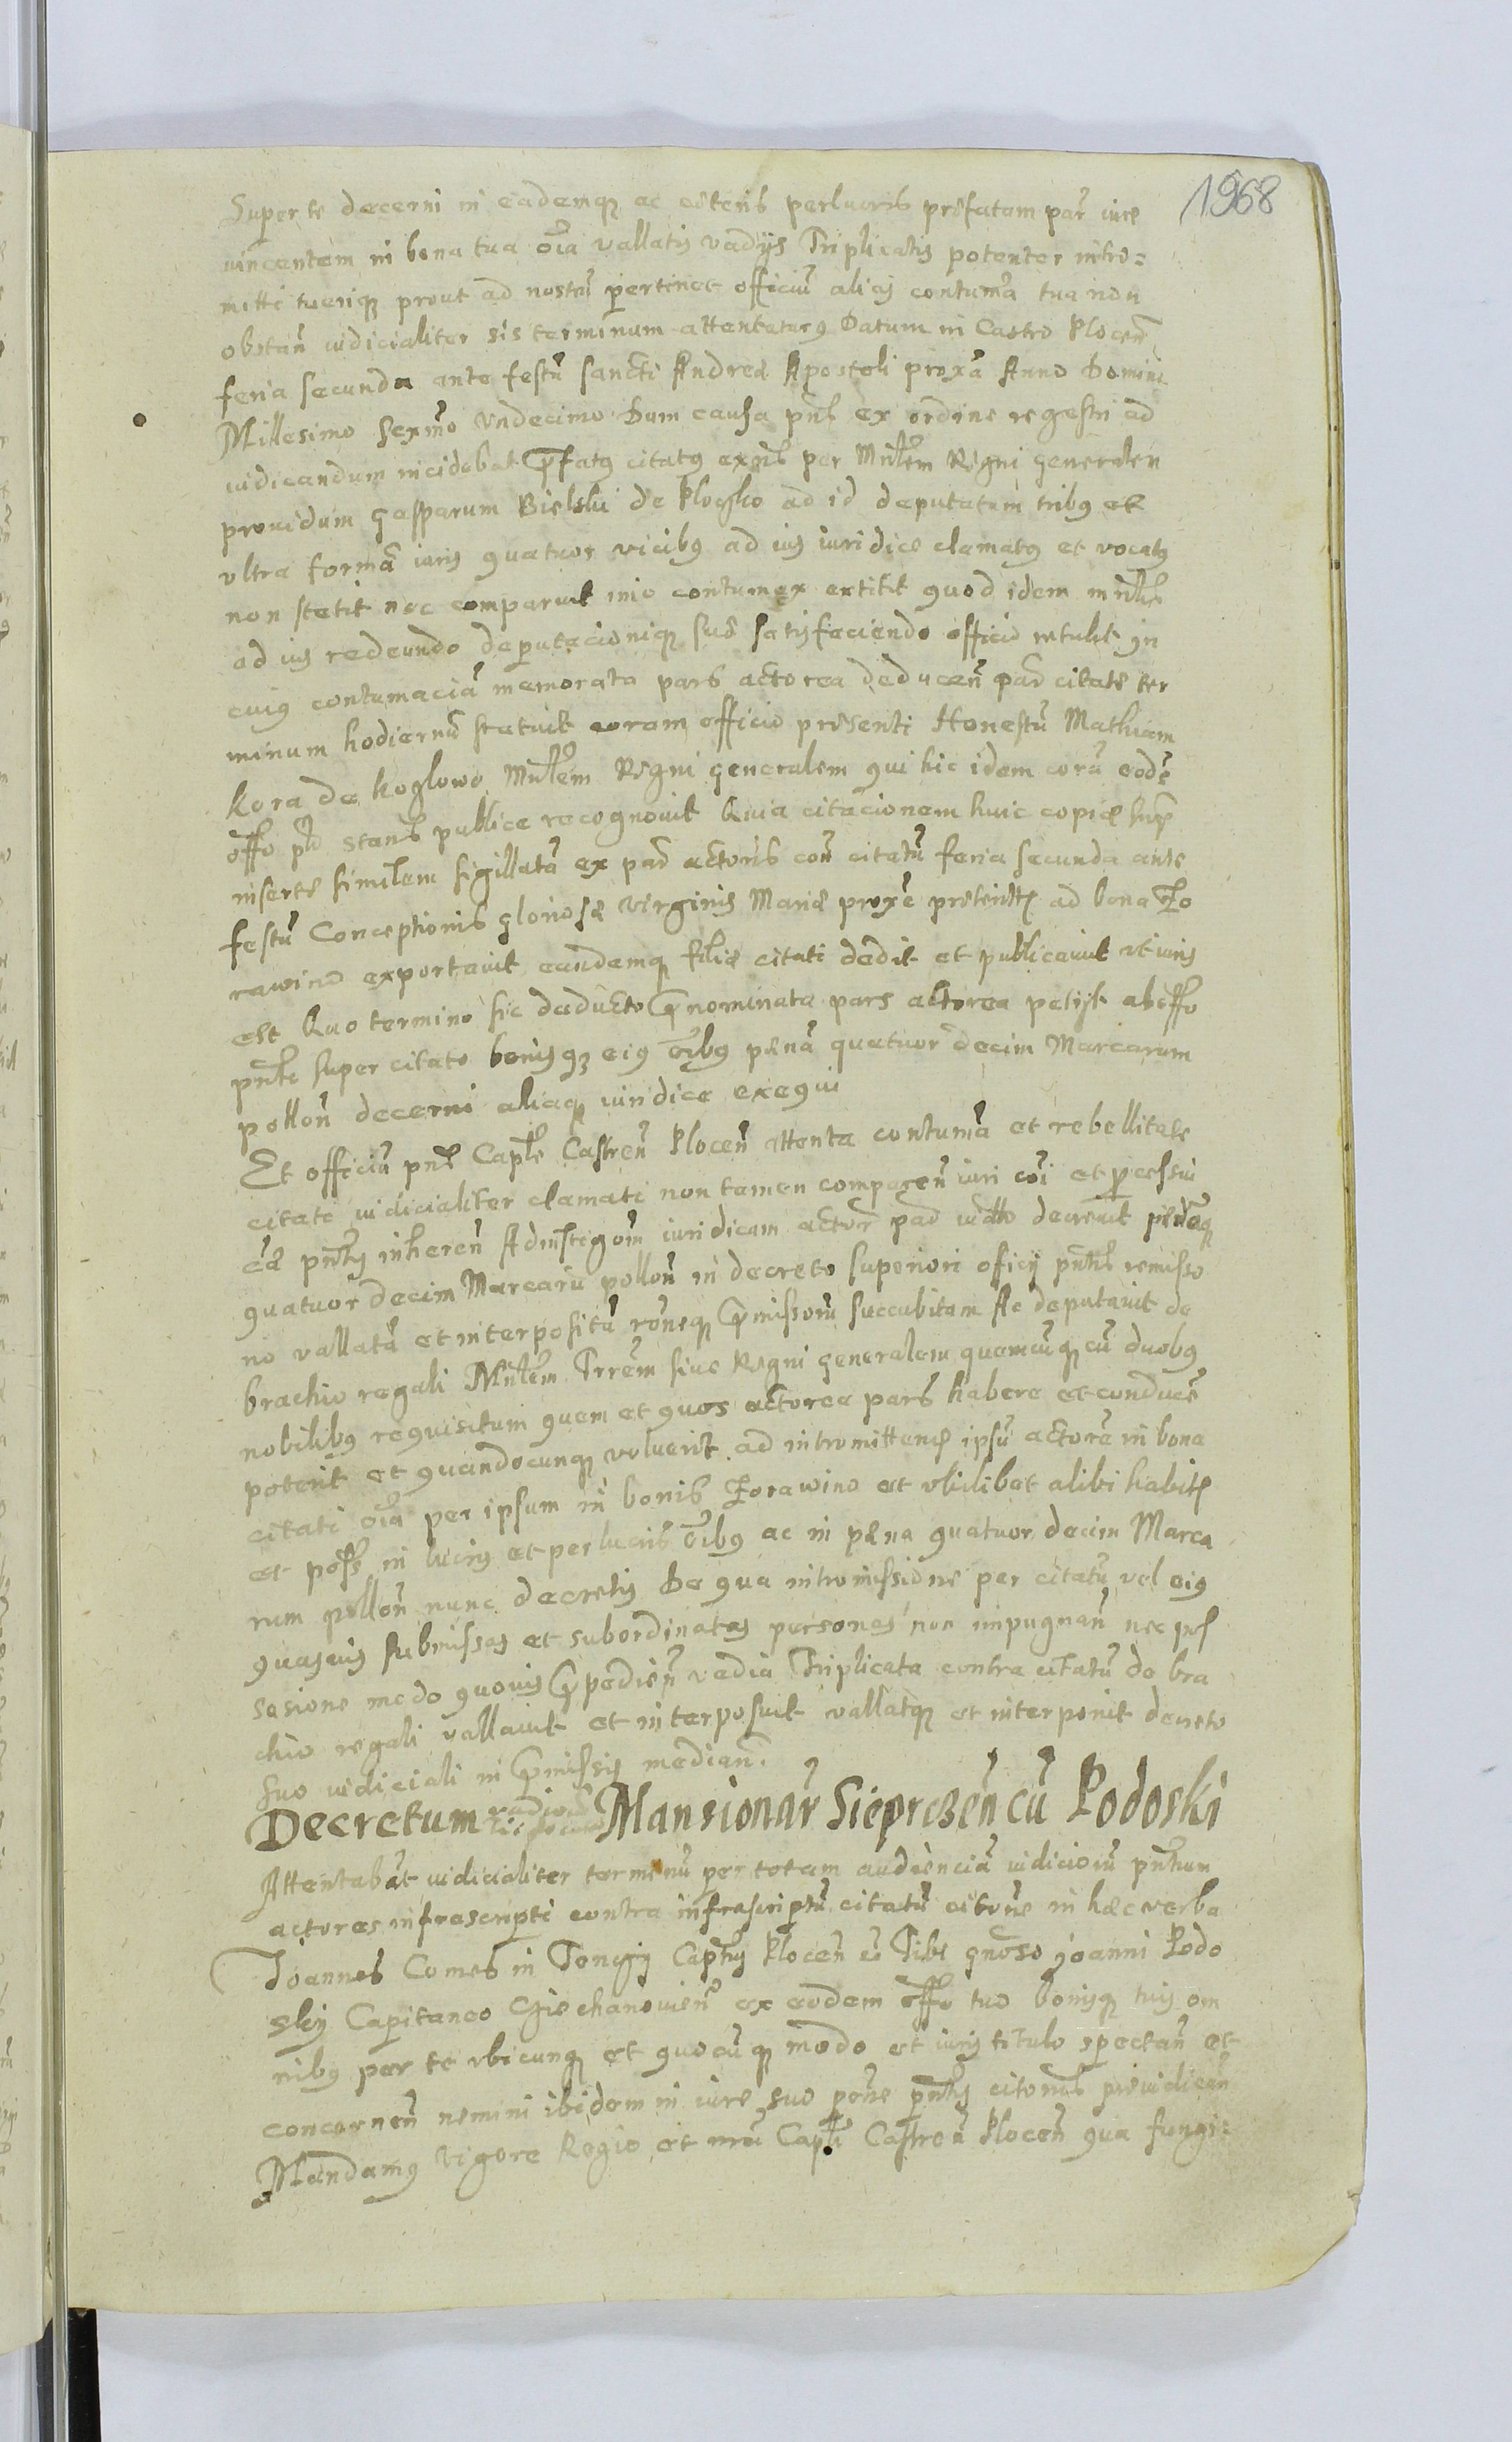 1968
Super te decerni in eademq ac ceteris perlucris prefatam par iure
vincentem in bona tua oia vallatis vadys Triplicatis potenter intro=
mitti tueriq prout ad nostru pertinet officiu alias contuma tua non
obstan iudicialiter sis terminum attentaturus Datum in Castro Plocen
feria secunda ante festu sancti Andreæ Apostoli proxa Anno Domini
Millesimo Sexmo Undecimo Dum causa pns ex ordine regestri ad
iudicandum incidebat Prefatus citatus per Mnlem Regni generalem
providum Gasparum Bielski de ad id deputatum tribus et
ultra forma iuris quatuor vicibus ad ius iuridice clamatus et vocatus
non stetit nec comparuit imo contumax extitit quod idem
ad ius redeundo deputacioniq suæ satisfaciendo officio retulit In
cuius contumacia memorata pars actorea deducen par citate ter
minum hodiernu statuit coram officio presenti Honestu Mathiam
Kora de Koglowo Mnlem Regni generalem qui hic idem cora eode
offo stans publice recognovit Quia citacionem huic copiæ
insertæ similem sigillata ex par actoris con citatu feria secunda ante
festu Conceptionis gloriosæ Virginis Mariæ proxe ad bona Zo
rawino exportavit eandemq filiæ citati dedit et publicavit uti iuris
est Quo termino sic deducto Prenominata pars actorea petyt ab offo
pnte super citato bonisq eius oibus pæna quatuor decim Marcarum
pollon decerni aliaq iuridice exequi
Et officiu pns Caple Castren Plocen attenta contuma et rebellitate
citati iudicialiter clamati non tamen comparen iuri coi et
pntis inheren iuridicam actor par decrevit
quatuor decim Marcaru pollon in decreto superiori officy pntis remisso
no vallata et interposita roneq Premissoru succubitam Ac deputavit de
brachio regali Mnlem Trrem sive Regni generalem quemcuq cu duobus
nobilibus requisitum quem et quos actorea pars habere et conducere
poterit et quandocunq voluerit ad intromitten ipsu actore in bona
citati oia per ipsum in bonis Zorawino et ubilibet alibi habita
et poss in lucris et perlucris oibus ac in pæna quatuor decim Marca
rum pollon nunc decretis De qua intromissione per citatu vel eius
quasvis submissas et subordinatas personas non impugnan nec pos
sesione modo quovis Prepedien vadia Triplicata contra citatu de bra
chio regali vallavit et interposuit vallatq et interponit decreto
suo iudiciali in Premissis median.
Decretum Mansionar Sieprezen cu Podoski
Attentabat iudicialiter terminu per totam audiencia iudicioru pntium
actores infrascripti contra infrascriptu citatu citone in hæc verba
Joannes Comes in Tenczyn Captus Plocen Tibi gnoso Joanni Podo
sky Capitaneo Cziechanovien ex eodem offo tuo bonisq tuis om
nibus per te ubicunq et quocuq modo et iuris titulo spectan et
concernen nemini ibidem in iure suo pntis citonis preiudican
Mandamus vigore Regio et nra Capli Castren Plocen qua fungi=